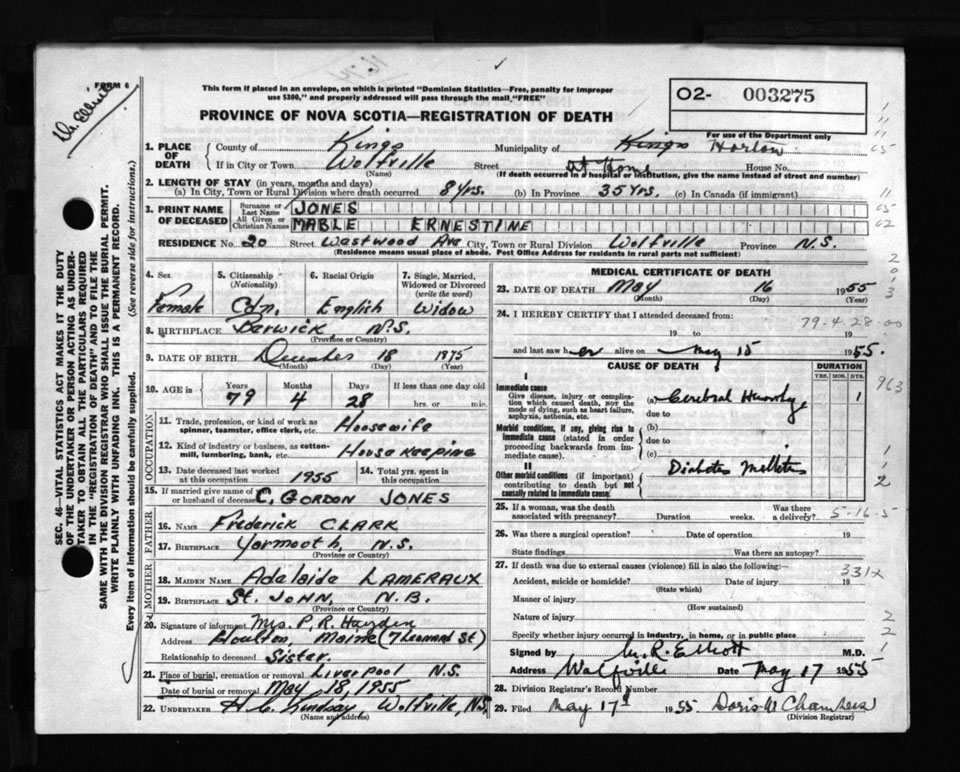 FORM 6
This form if placed in an envelope, on which is printed "Dominion Statistics—Free, penalty for improper
use $300," and properly addressed will pass through the mail "FREE"
O2- 003275
PROVINCE OF NOVA SCOTIA—REGISTRATION OF DEATH
For use of the Department only
1. PLACE OF DEATH County of Kings Municipality of Kings Horton
If in City or Town Wolfville Street At Home House No.
(Name) (If death occurred in a hospital or institution, give the name instead of street and number)
2. LENGTH OF STAY (in years, months and days)
(a) In City, Town or Rural Division where death occurred 8 yrs. (b) In Province 35 Yrs. (c) In Canada (if immigrant)
3. PRINT NAME OF DECEASED Surname or Last Name JONES
All Given or Christian Names MABLE ERNESTINE
RESIDENCE No. 20 Street Westwood Ave City, Town or Rural Division Wolfville Province N.S.
(Residence means usual place of abode. Post Office Address for residents in rural parts not sufficient)
4. Sex Female
5. Citizenship (Nationality) Cdn.
6. Racial Origin English
7. Single, Married, Widowed or Divorced (write the word) Widow
8. BIRTHPLACE Berwick N.S.
(Province or Country)
9. DATE OF BIRTH December 18 1875
(Month) (Day) (Year)
10. AGE in Years 79 Months 4 Days 28 If less than one day old
hrs. or min.
OCCUPATION
11. Trade, profession, or kind of work as spinner, teamster, office clerk, etc. Housewife
12. Kind of industry or business, as cotton-mill, lumbering, bank, etc. House keeping
13. Date deceased last worked at this occupation 1955
14. Total yrs. spent in this occupation
15. If married give name of or husband of deceased C. GORDON JONES
FATHER
16. NAME Frederick CLARK
17. BIRTHPLACE Yarmouth, N.S.
(Province or Country)
MOTHER
18. MAIDEN NAME Adelaide LAMERAUX
19. BIRTHPLACE St. JOHN, N.B.
(Province or Country)
20. Signature of informant Mrs. P. R. Hayden
Address Houlton, Maine (7 Leonard St)
Relationship to deceased Sister.
21. Place of burial, cremation or removal Liverpool N.S.
Date of burial or removal May 18, 1955
22. UNDERTAKER H. C. Lindsay, Wolfville, N.S.
(Name and address)
MEDICAL CERTIFICATE OF DEATH
23. DATE OF DEATH May 16 1955
(Month) (Day) (Year)
24. I HEREBY CERTIFY that I attended deceased from:
79-4-28-00
19 to 19
and last saw her alive on May 15 1955.
CAUSE OF DEATH DURATION
YRS. MOS. DYS.
I
Immediate cause
Give disease, injury or complication which caused death, not the mode of dying, such as heart failure, asphyxia, asthenia, etc.
(a) Cerebral 1
due to
Morbid conditions, if any, giving rise to immediate cause (stated in order proceeding backwards from immediate cause).
(b)
due to
(c)
II
Other morbid conditions (if important) contributing to death but not causally related to immediate cause.
Diabetes Mellitus
963
25. If a woman, was the death associated with pregnancy? Duration weeks. Was there a delivery?
5-16-5
26. Was there a surgical operation? Date of operation 19
State findings Was there an autopsy?
27. If death was due to external causes (violence) fill in also the following:—
331x
Accident, suicide or homicide? Date of injury 19
(State which)
Manner of injury
(How sustained)
Nature of injury
Specify whether injury occurred in industry, in home, or in public place
Signed by W. R. Elliott M.D.
Address Wolfville Date May 17 1955
28. Division Registrar's Record Number
29. Filed May 17 1955 Doris W Chambers
(Division Registrar)
SEC. 46—VITAL STATISTICS ACT MAKES IT THE DUTY
OF THE UNDERTAKER OR PERSON ACTING AS UNDER-
TAKER TO OBTAIN ALL THE PARTICULARS REQUIRED
IN THE "REGISTRATION OF DEATH" AND TO FILE THE
SAME WITH THE DIVISION REGISTRAR WHO SHALL ISSUE THE BURIAL PERMIT.
WRITE PLAINLY WITH UNFADING INK. THIS IS A PERMANENT RECORD.
Every item of information should be carefully supplied. (See reverse side for instructions.)